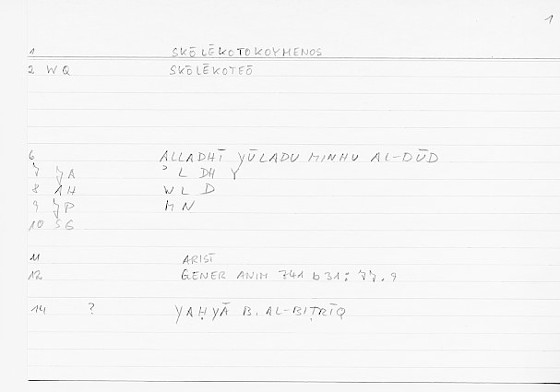 1
1 SKŌLĒKOTOKOYMENOS
2 WQ SKŌLĒKOTEŌ
6 ALLADHĪ YŪLADU MINHU AL-DŪD
7 YA ʾ L DH Y
8 AH W L D
9 YP M N
10 SG
11 ARIST
12 GENER ANIM 741 b 31: 77.9
14 ? YAḤYĀ B. AL-BIṬRĪQ